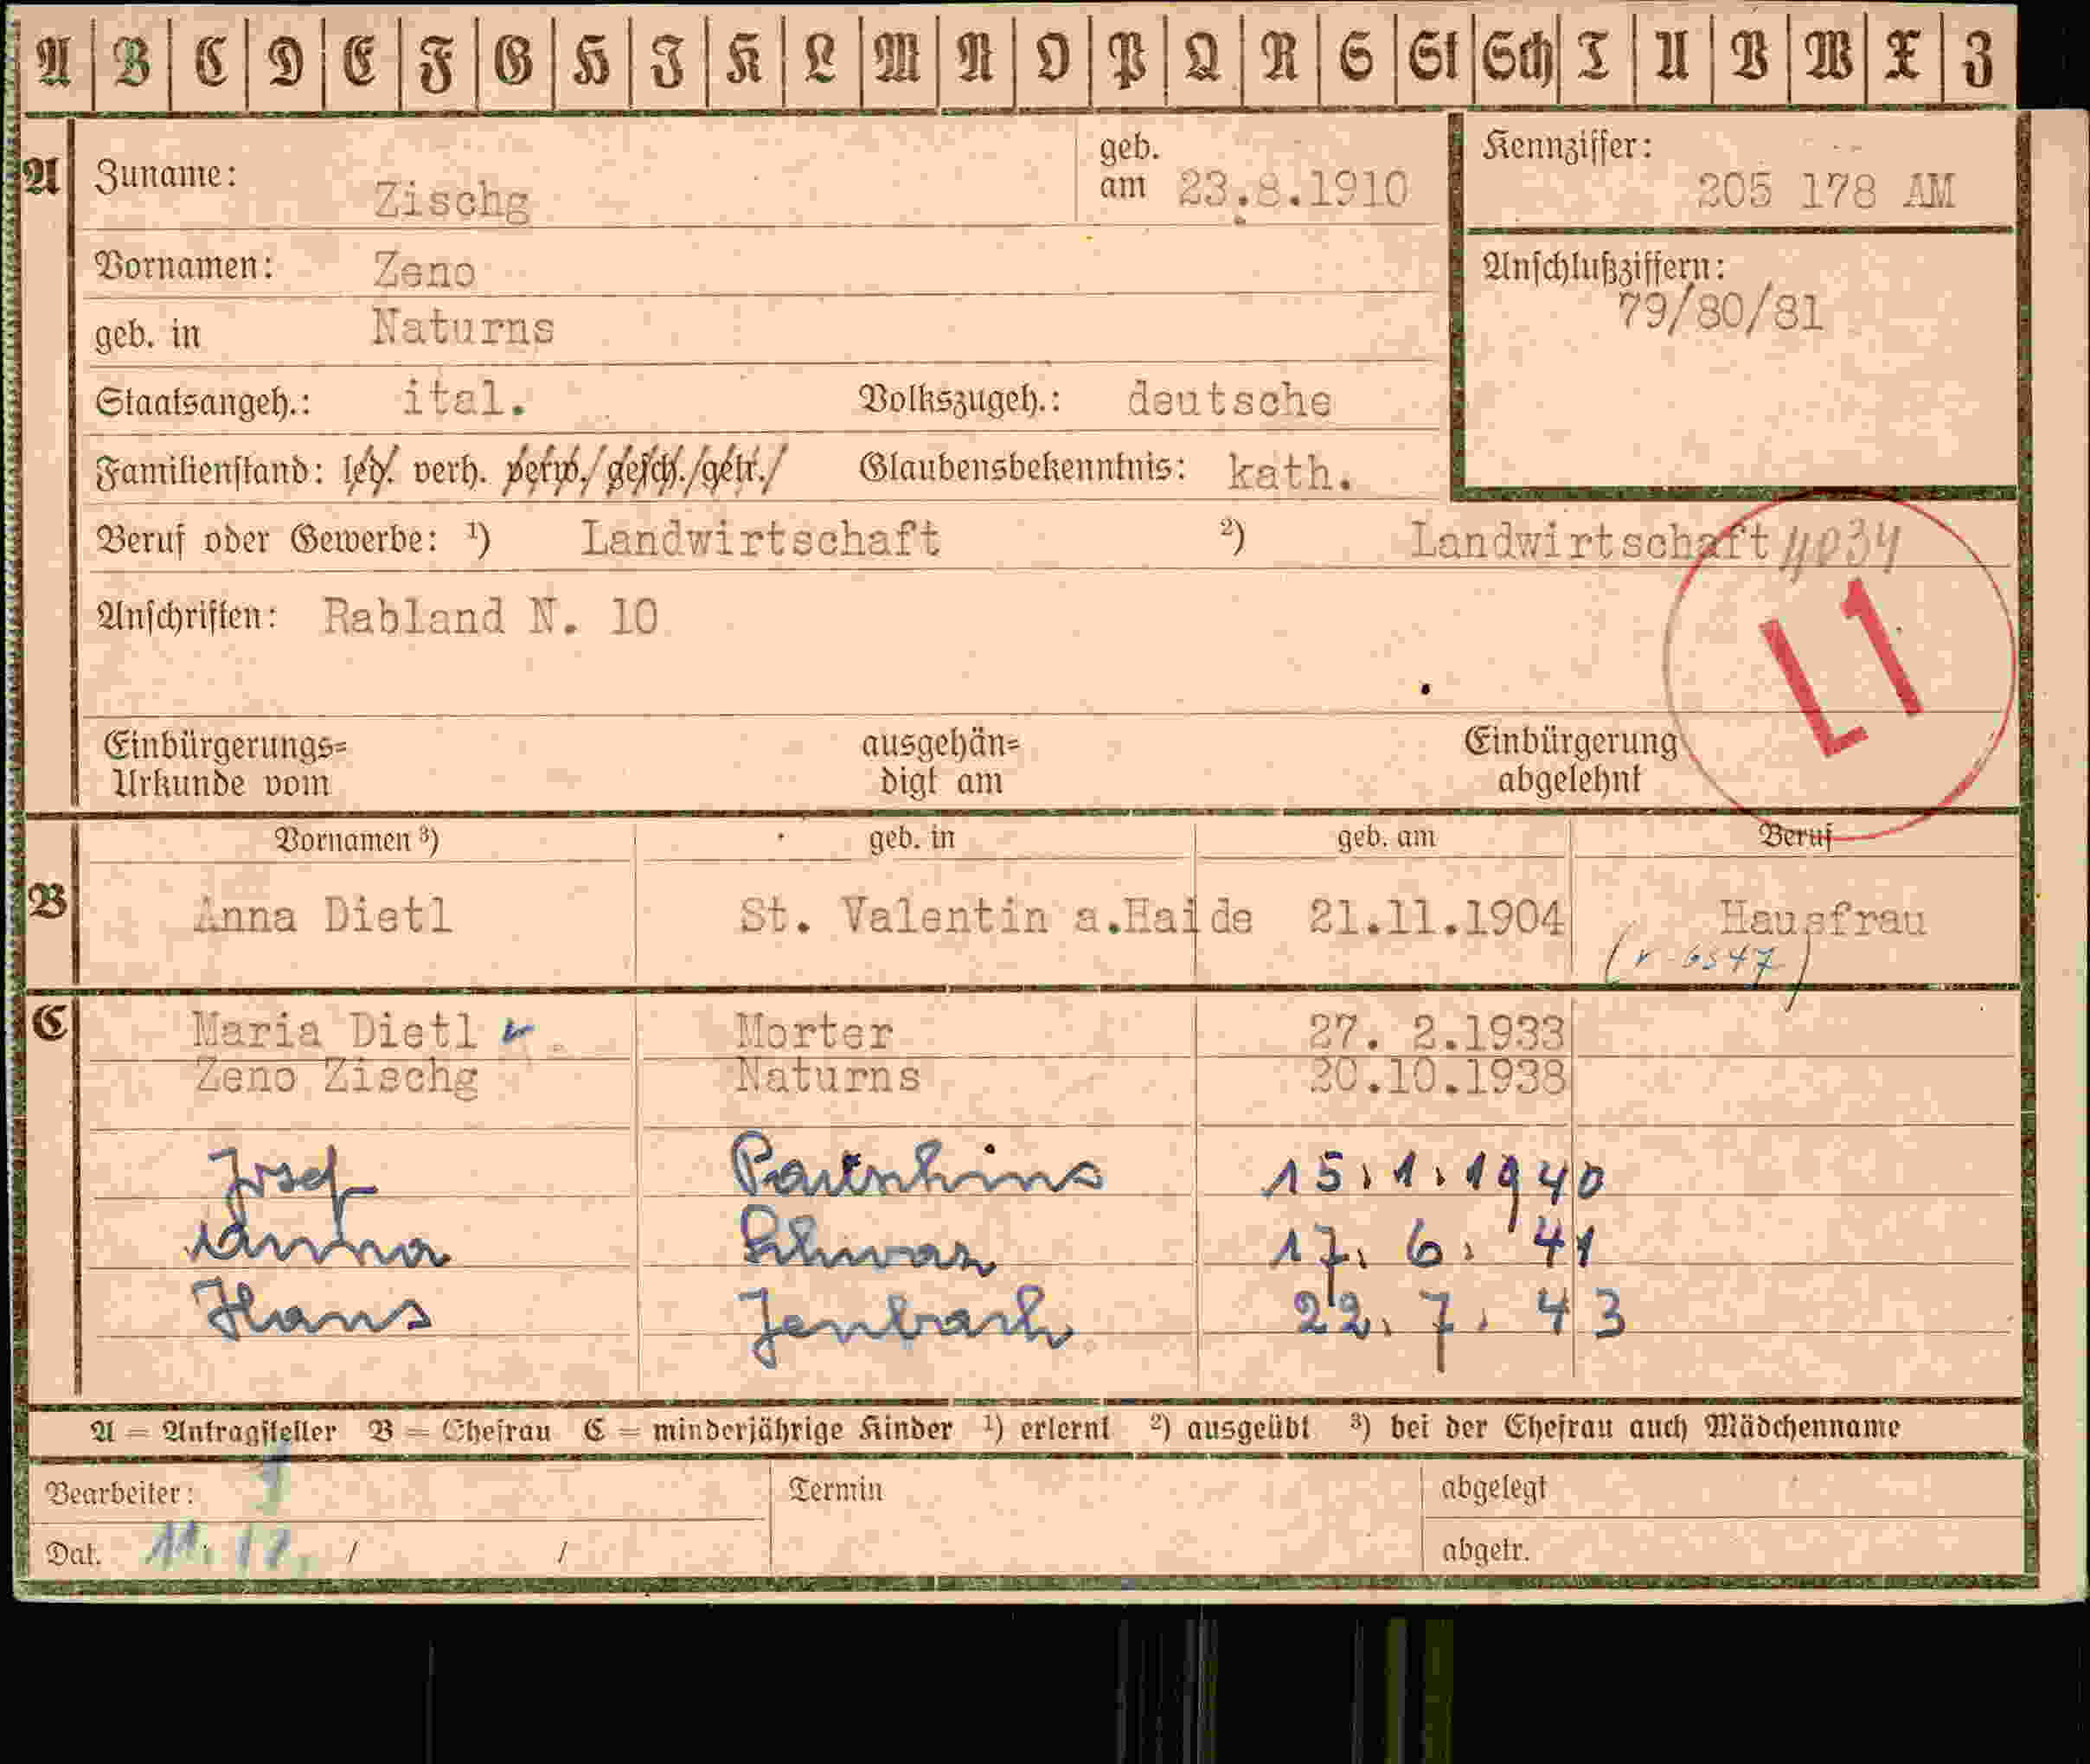 A B C D E F G H I K L M N O P Q R S St Sch T U V W X Z
A Zuname: Zischg geb. am 23.8.1910 Kennziffer: 205 178 AM
Vornamen: Zeno Anschlußziffern: 79/80/81
geb. in Naturns
Staatsangeh.: ital. Volkszugeh.: deutsche
Familienstand: led. verh. verw./gesch./getr./ Glaubensbekenntnis: kath.
Beruf oder Gewerbe: ¹) Landwirtschaft ²) Landwirtschaft 4034
Anschriften: Rabland N. 10
L1
Einbürgerungs= ausgehän= Einbürgerung
Urkunde vom digt am abgelehnt
Vornamen ³) geb. in geb. am Beruf
B Anna Dietl St. Valentin a.Haide 21.11.1904 Hausfrau
C Maria Dietl Morter 27. 2.1933
Zeno Zischg Naturns 20.10.1938
Josef 15.1.1940
Anna Schwaz 17. 6. 41
Hans Jenbach 22. 7. 43
A = Antragsteller B = Ehefrau C = minderjährige Kinder ¹) erlernt ²) ausgeübt ³) bei der Ehefrau auch Mädchenname
Bearbeiter: Termin abgelegt
Dat. 11. 12. / / abgetr.